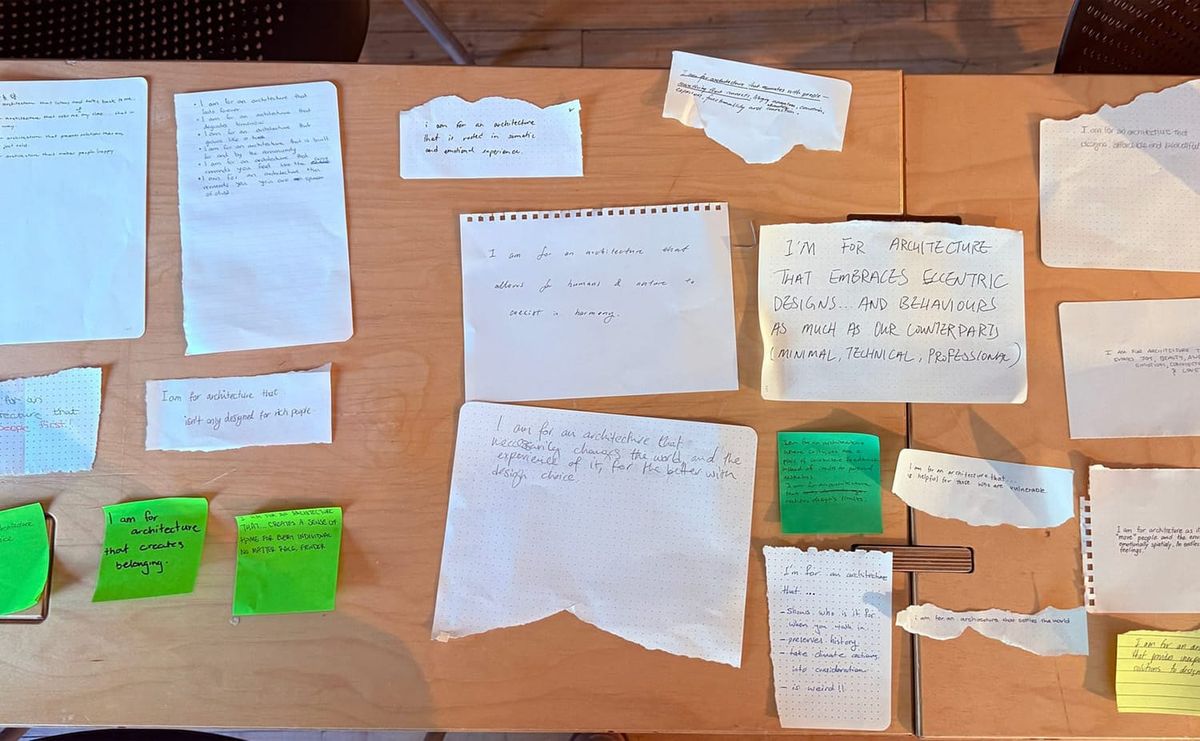 architecture that listens and
architecture that
architecture that
architecture that makes people happy
• I am for an architecture that
lasts forever
• I am for an architecture that
degrades
• I am for an architecture that
grows like a tree
• I am for an architecture that is built
for and by the community
• I am for an architecture that
reminds you feel like the
• I am for an architecture that
reminds you you are
of
i am for an architecture
that is rooted in somatic
and emotional experience.
I am for architecture that resonates with people –
something that connects,
functionality and connection.
I am for an architecture that
designs, affordable and beautiful
I am for an architecture that
allows for humans & nature to
coexist in harmony.
I'M FOR ARCHITECTURE
THAT EMBRACES ECCENTRIC
DESIGNS... AND BEHAVIOURS
AS MUCH AS OUR COUNTERPARTS
(MINIMAL, TECHNICAL, PROFESSIONAL)
I AM FOR ARCHITECTURE T
JOY, BEAUTY, AW
EMOTION, CONNECTIO
& LOVE
for an
that
people first!
I am for architecture that
isn't only designed for rich people.
I am for an architecture that
necessarily changes the world, and the
experience of it, for the better with
design choice.
I am for an architecture
where critiques are a
place of constructive feedback
instead of
I am for an architecture
that
I am for an architecture that...
is helpful for those who are vulnerable
I am for architecture as it
"move" people and the env
emotionally spatially. An endless
feelings.
architecture
I am for
architecture
that creates
belonging.
I AM FOR AN ARCHITECTURE
THAT... CREATES A SENSE OF
HOME FOR EVERY INDIVIDUAL
NO MATTER RACE, GENDER
I'm for an architecture
that ...
- shows who is it for
when you walk in
- preserves history
- take climate actions
into consideration
- is weird!!
i am for an architecture that settles the world
I am for an ar
that provides unexpec
solutions to design